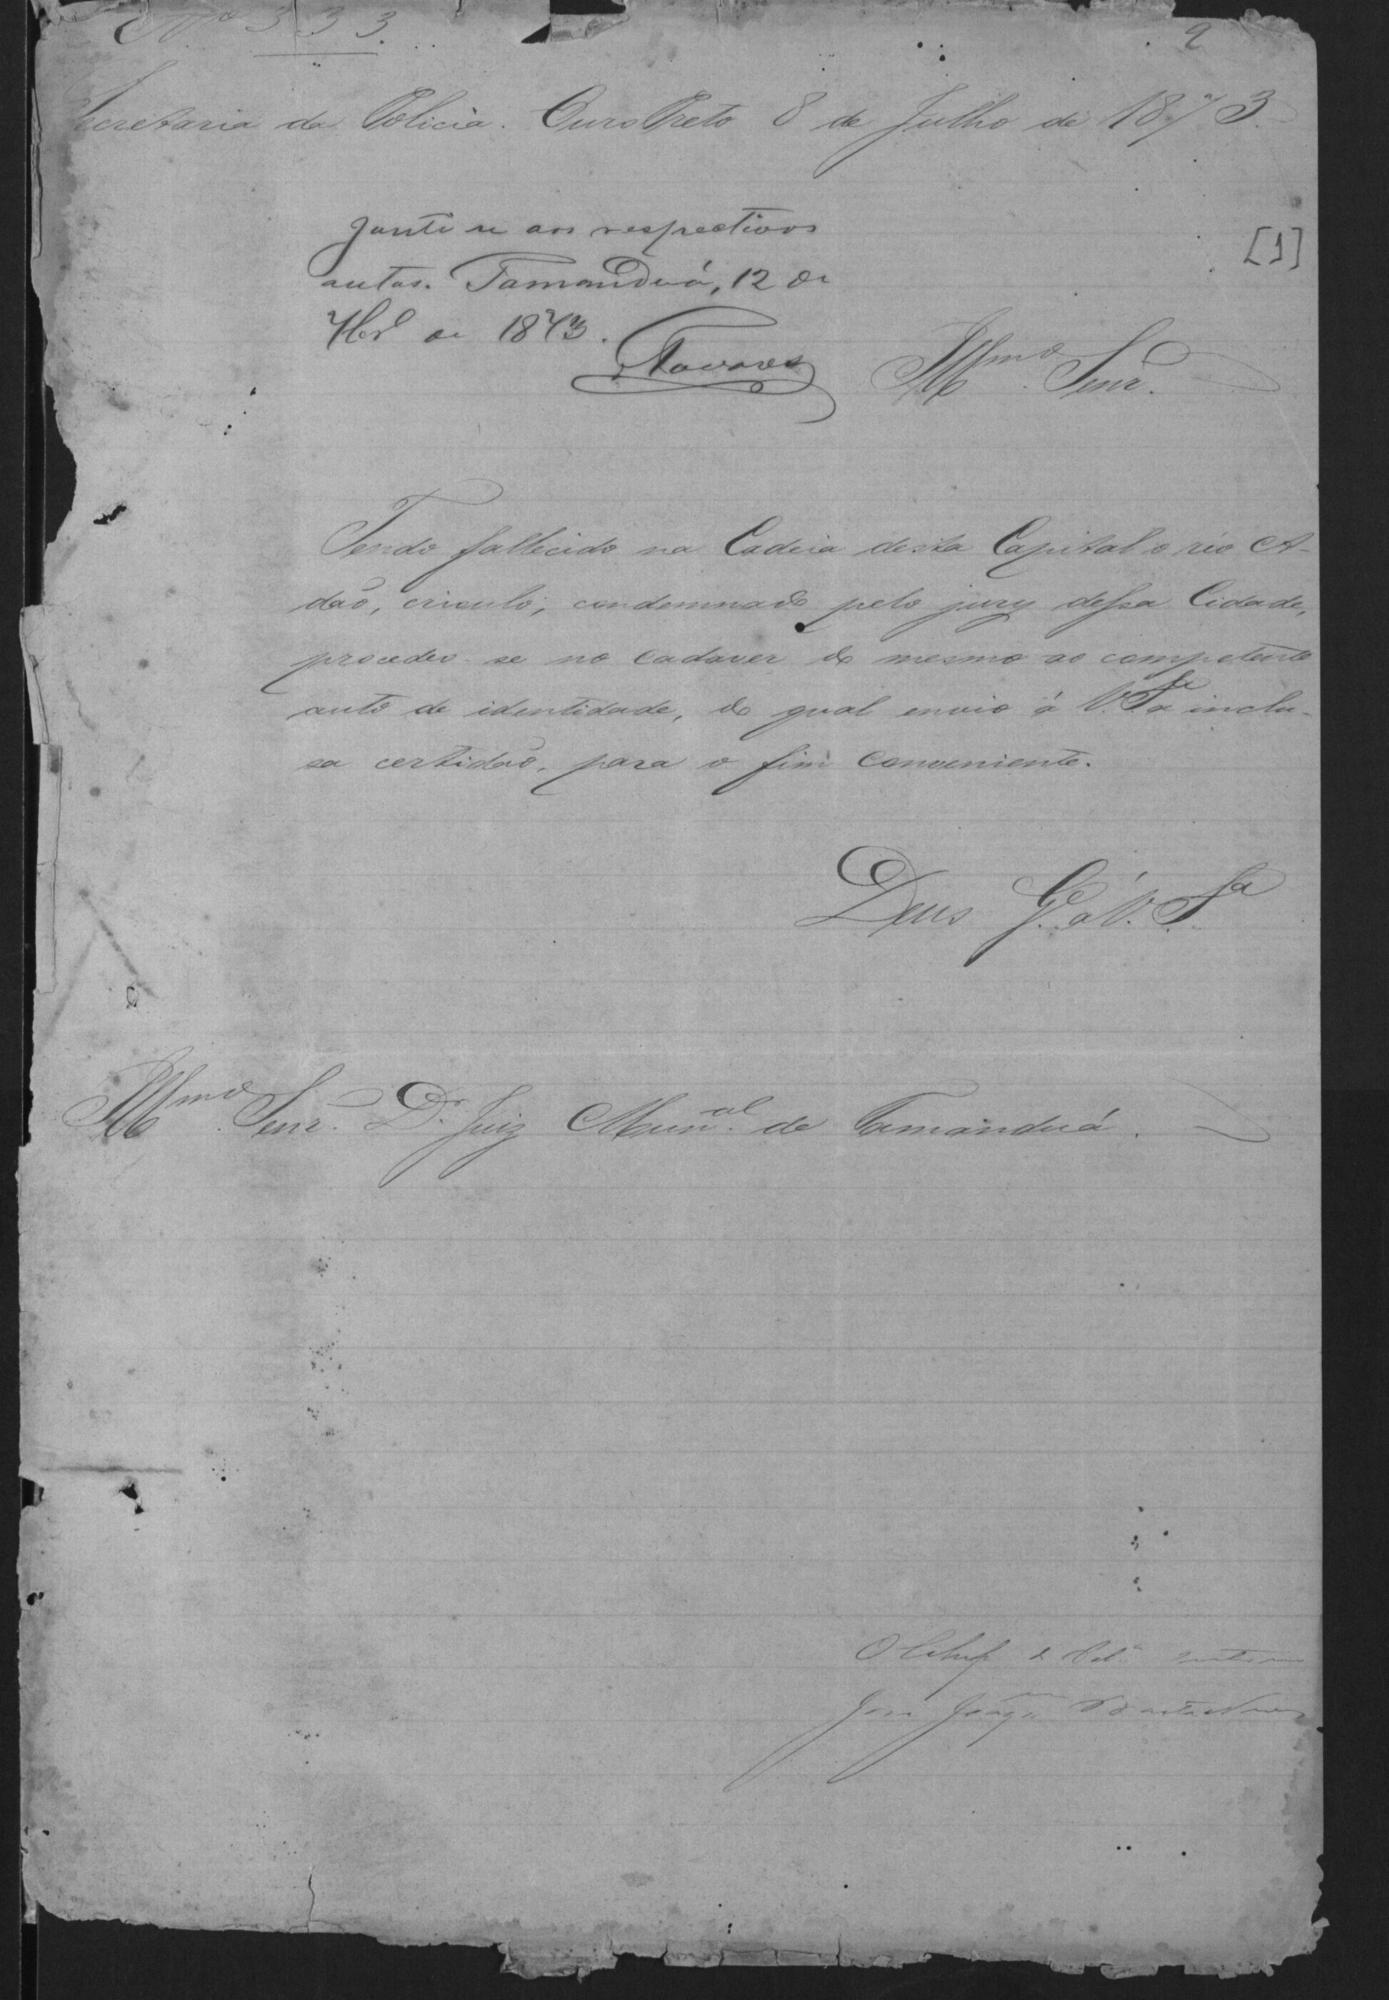 Nº 333.
2
Secretaria da Policia. Ouro Preto 8 de Julho de 1873.
Junte se aos respectivos
autos. Tamanduá, 12 de
7brº de 1873.
Tavares
[1]
Illmo. Senr.
Tendo fallecido na Cadeia desta Capital o réo A-
dão, crioulo, condemnado pelo jury dessa Cidade,
procedeo-se no cadaver do mesmo ao competente
auto de identidade, do qual envio á V. Sa inclu-
sa certidão, para o fim conveniente.
Deus G. a V. Sa
Illmo. Senr. Dr. Juiz Munal. de Tamanduá.
O Chefe de Pola. interino
José Joaqm